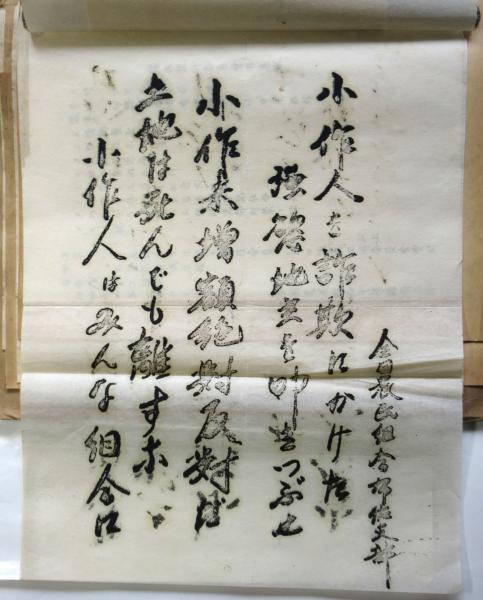 全国農民組合布佐支部
小作人を詐欺にかけた
強慾地主を叩きつぶせ
小作米増額絶對反對だ
土地は死んでも離すな
小作人はみんな組合に